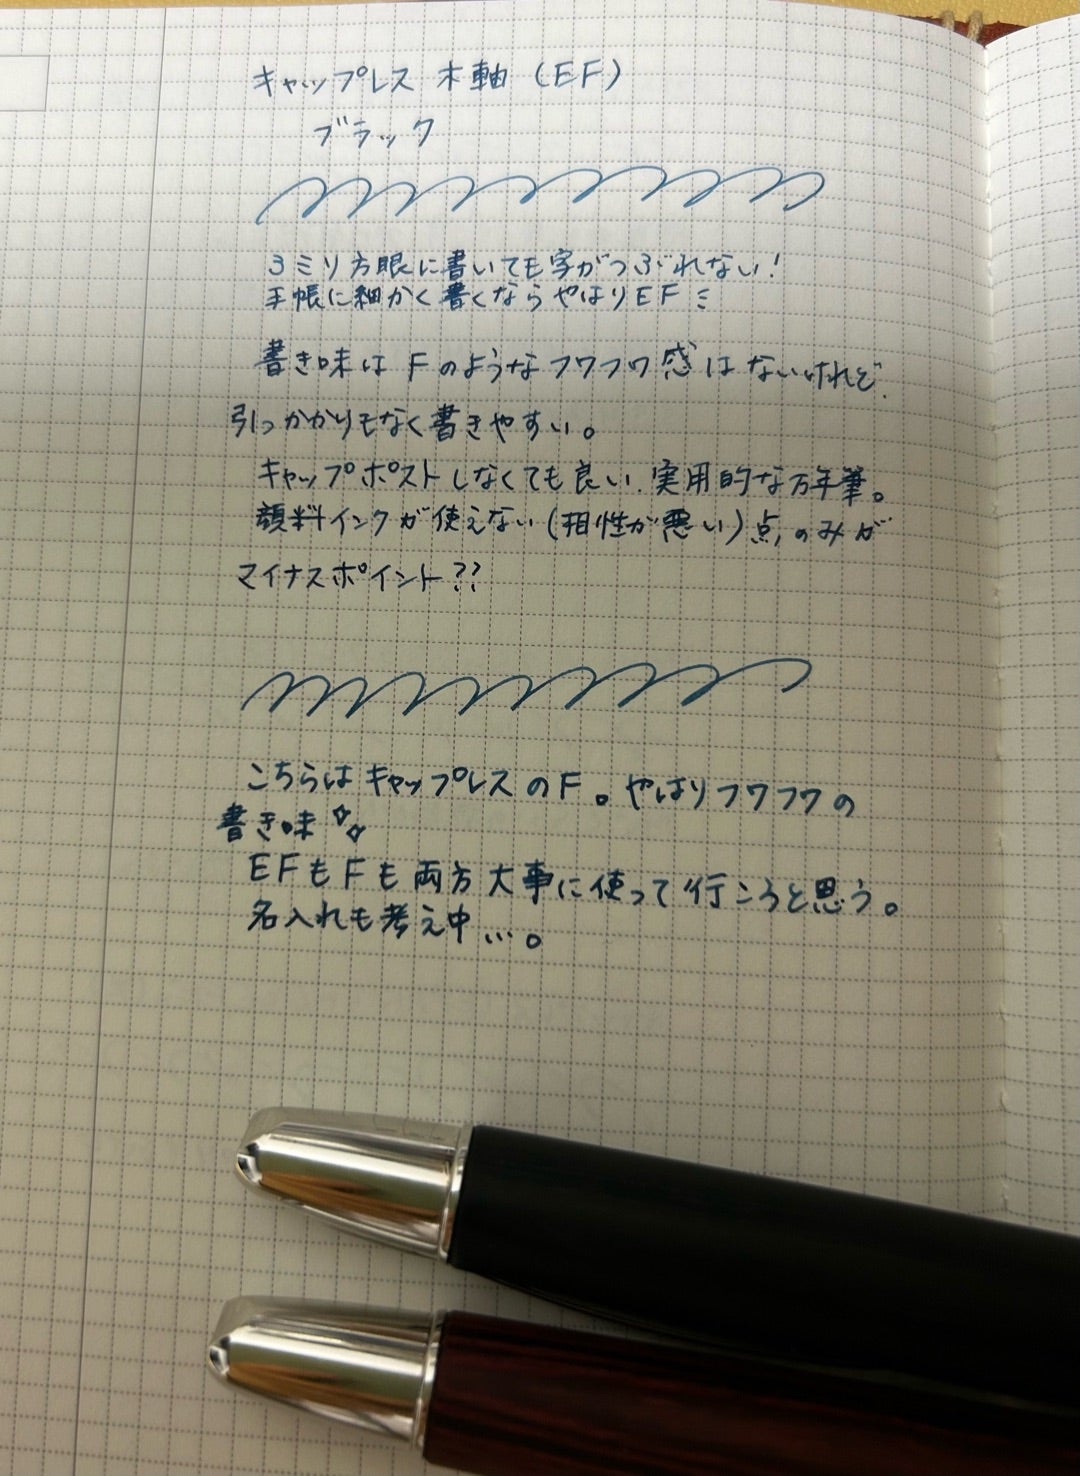 キャップレス 木軸 (EF)
ブラック
3ミリ方眼に書いても字がつぶれない!
手帳に細かく書くならやはりEF
書き味は Fのようなフワフワ感はないけれど、
引っかかりもなく書きやすい。
キャップポストしなくても良い、実用的な万年筆。
顔料インクが使えない(相性が悪い)点のみが
マイナスポイント??
こちらはキャップレスのF。やはりフワフワの
書き味
EFもFも両方大事に使って行こうと思う。
名入れも考え中...。